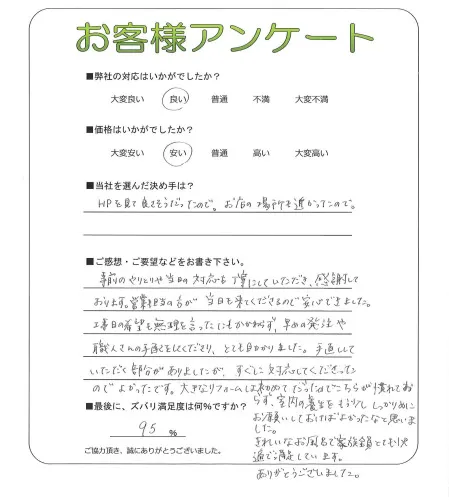 お客様アンケート
■弊社の対応はいかがでしたか？
大変良い 良い 普通 不満 大変不満
■価格はいかがでしたか？
大変安い 安い 普通 高い 大変高い
■当社を選んだ決め手は？
HPを見て良さそうだったので。お店の場所も近かったので。
■ご感想・ご要望などをお書き下さい。
事前のやりとりや当日の対応も丁寧にしていただき、感謝して
おります。営業担当の方が当日も来てくださるので安心できました。
工事日の希望も無理を言ったにもかかわらず、早めの発注や
職人さんの手配をしてくださり、とても助かりました。手直しして
いただく部分がありましたが、すぐに対応してくださった
のでよかったです。大きなリフォームは初めてだったのでこちらが慣れてお
らず、室内の養生をもう少ししっかりめに
お願いしておけばよかったなと思いま
した。
きれいなお風呂で家族全員とても快
適で満足しています。
ありがとうございました。
■最後に、ズバリ満足度は何％ですか？
95 ％
ご協力頂き、誠にありがとうございました。